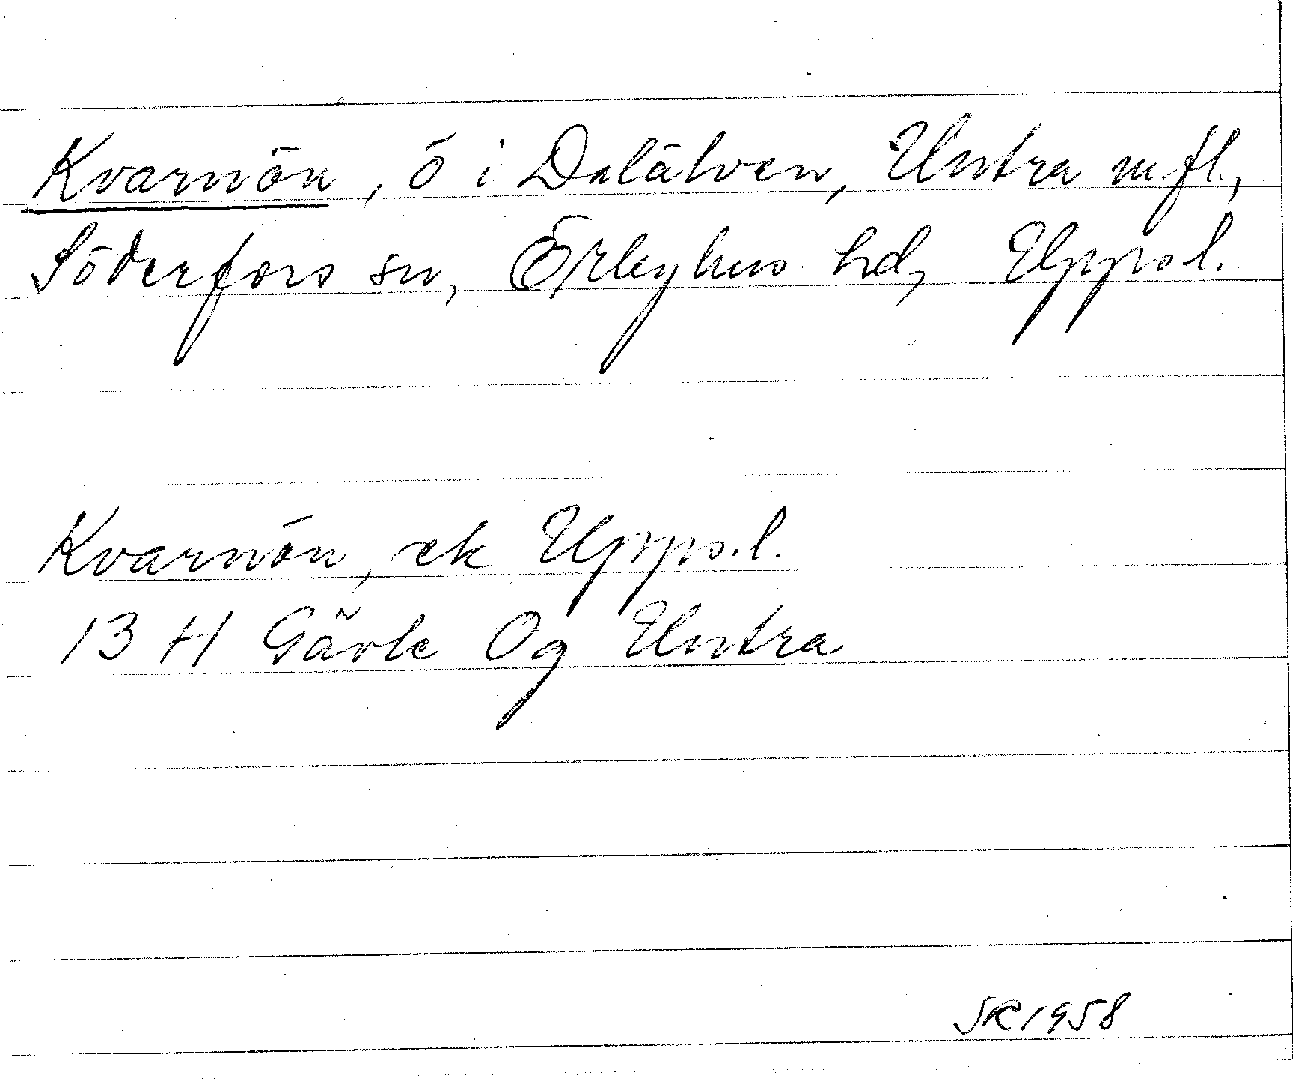 Kvarnön, ö i Dalälven, Untra m fl,
Söderfors sn, Örbyhus hd, Uppsl.
Kvarnön, ek Uppsl.
13 H Gävle Og Untra
SR 1958